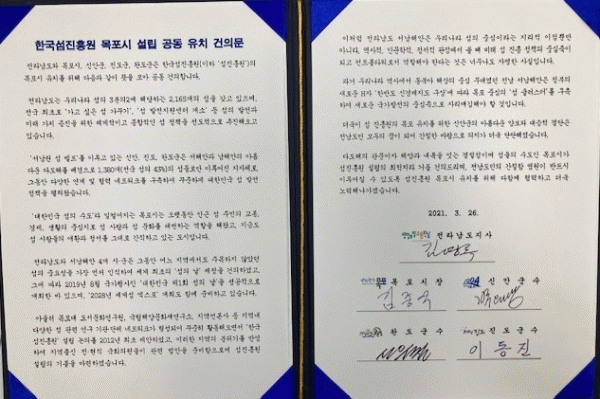 한국섬진흥원 목포시 설립 공동 유치 건의문
전라남도와 목포시, 신안군, 진도군, 완도군은 한국섬진흥원(이하 '섬진흥원')의
목포시 유치를 위해 다음과 같이 뜻을 모아 공동 건의합니다.
전라남도는 우리나라 섬의 3분의2에 해당하는 2,165개의 섬을 갖고 있으며,
전국 최초로 '가고 싶은 섬 가꾸기', '섬 발전지원센터 개소' 등 섬의 발전과
미래 가치 증진을 위한 체계적이고 종합적인 섬 정책을 선도적으로 추진해오고
있습니다.
'서남권 섬 벨트'를 이루고 있는 신안, 진도, 완도군은 서해안과 남해안의 아름
다운 다도해를 배경으로 1,380개(전국 섬의 43%)의 섬들로만 이루어진 지자체로,
그동안 다양한 연대 및 협력 네트워크를 구축하여 꾸준하게 대한민국 섬 발전
정책을 펼쳐왔습니다.
'대한민국 섬의 수도'라 일컬어지는 목포시는 오랫동안 인근 섬 주민의 교통,
경제, 생활의 중심지로 섬 사람과 섬 문화를 대변하는 역할을 해왔고, 지금도
섬 사람들의 애환과 정서를 그대로 간직하고 있는 도시입니다.
전라남도와 서남해안 4개 시·군은 그동안 여느 지역에서도 주목하지 않았던
섬의 중요성을 가장 먼저 인식하여 세계 최초의 '섬의 날' 제정을 건의하였고,
그에 따라 2019년 8월 국가행사인 '대한민국 제1회 섬의 날'을 성공적으로
개최한 바 있으며, '2028년 세계섬 엑스포' 개최도 함께 준비하고 있습니다.
아울러 목포대 도서문화연구원, 국립해양문화재연구소, 지역언론사 등 지역내
다양한 섬 관련 연구 기관·단체 네트워크가 형성되어 꾸준히 활동해오면서 '한국
섬진흥원' 설립 논의를 2012년 최초 제안하였고, 이러한 지역의 분위기를 반영
하여 지역출신 전·현직 국회의원들이 관련 법안을 준비함으로써 섬진흥원
설립의 기틀을 마련하였습니다.
이처럼 전라남도 서남해안은 우리나라 섬의 중심이라는 지리적 이점뿐만
아니라, 역사적, 인문학적, 정서적 관점에서 볼 때 미래 섬 진흥 정책의 중심축이
되고 컨트롤타워로서 역할해야 한다는 것은 너무나도 자명한 사실입니다.
과거 우리나라 역사에서 동북아 해상의 중심 무대였던 전남 서남해안은 정부의
새로운 의지 '한반도 신경제지도 구상'에 따라 목포 중심의 '섬 클러스터'를 구축
하여 새로운 국가발전의 중심축으로 자리매김해야 할 것입니다.
더욱이 섬 진흥원의 목포 유치를 위한 신안군의 아름다운 양보와 대승적 결단은
전남도민 모두의 꿈이 되어 간절한 바람으로 의지가 더욱 단단해졌습니다.
다도해의 관문이자 해양과 내륙을 잇는 결절점이며 섬들의 수도인 목포시가
섬진흥원 설립의 최적지라 거듭 건의드리며, 전남도민의 간절한 염원이 반드시
이루어질 수 있도록 섬진흥원 목포시 유치를 위해 다함께 협력하고 더욱
노력해나가겠습니다.
2021. 3. 26.
전라남도지사
김영록
목포시장 신안군수
김종식
완도군수 진도군수
이동진